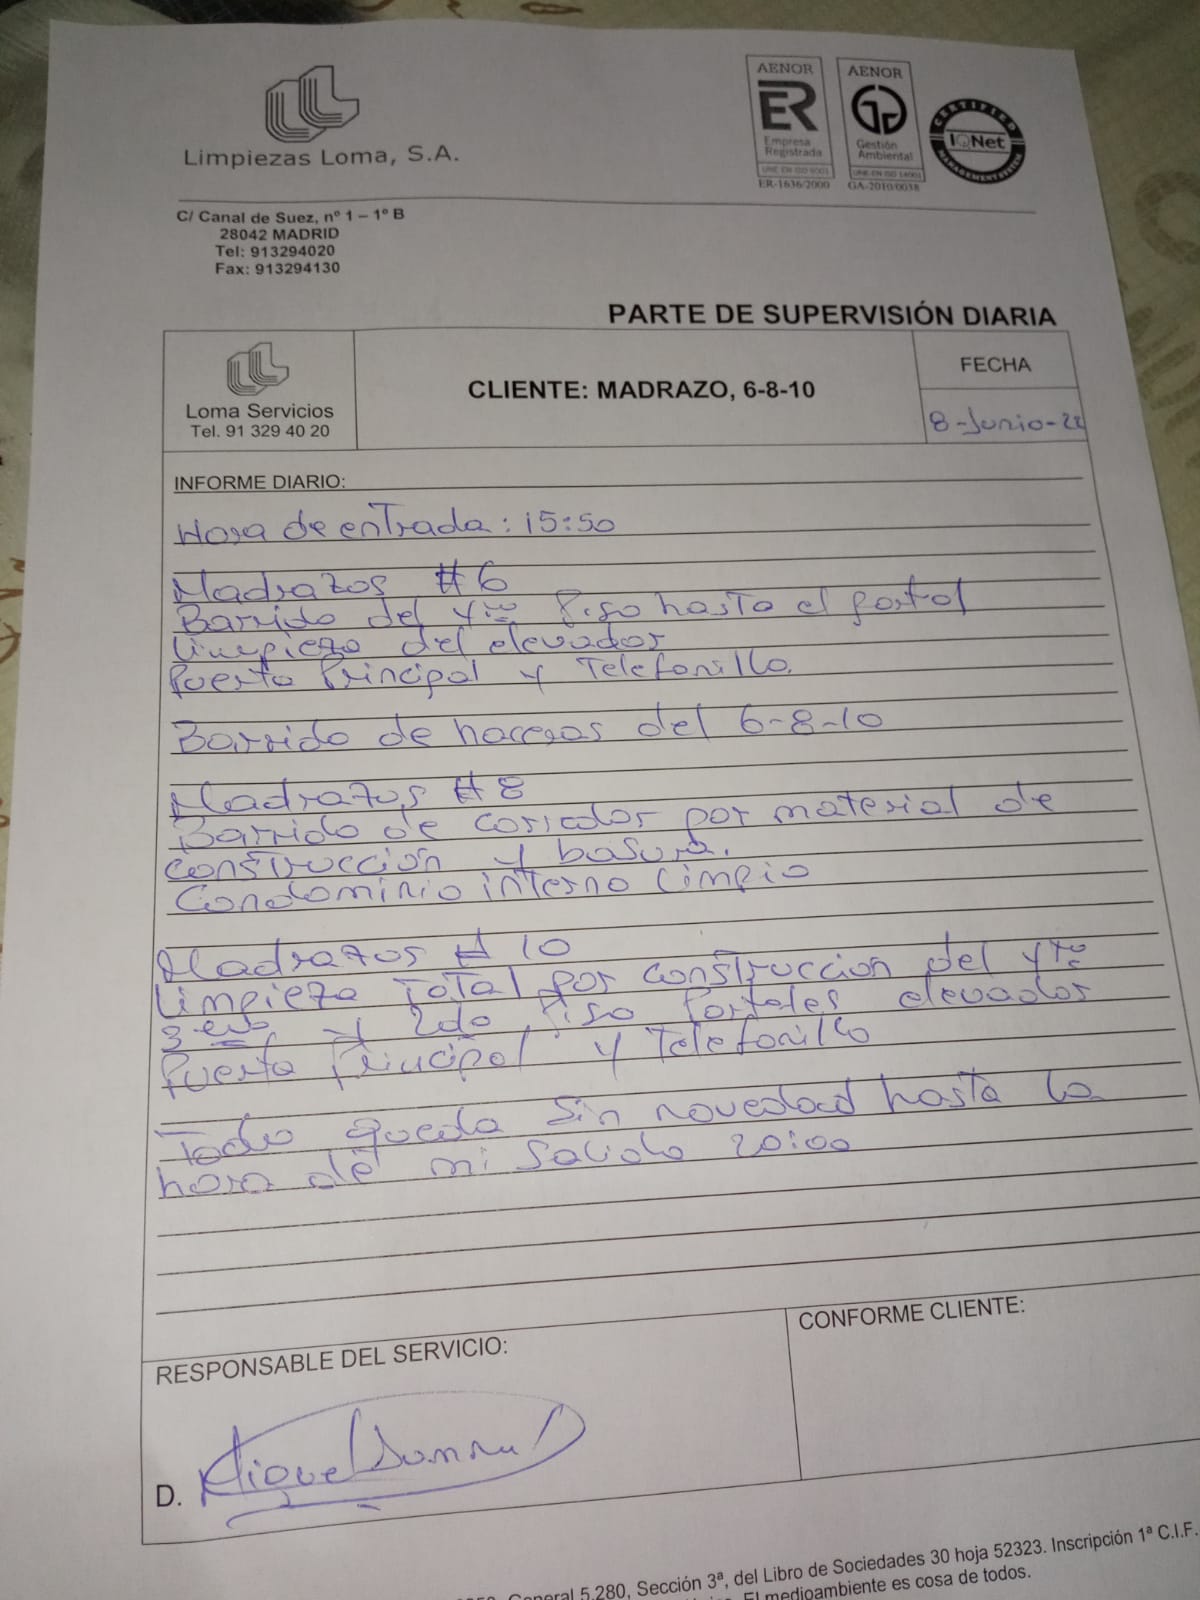 Limpiezas Loma, S.A.
AENOR
ER
Empresa
Registrada
UNE-EN ISO 9001
ER-1636/2000
AENOR
Gestión
Ambiental
UNE-EN ISO 14001
GA-2010/0038
CERTIFIED
IQNet
MANAGEMENT SYSTEM
C/ Canal de Suez, nº 1 – 1º B
28042 MADRID
Tel: 913294020
Fax: 913294130
PARTE DE SUPERVISIÓN DIARIA
Loma Servicios
Tel. 91 329 40 20
CLIENTE: MADRAZO, 6-8-10
FECHA
8-Junio-22
INFORME DIARIO:
Hora de entrada: 15:50
Madrazos #6
Barrido del 4to piso hasta el portal
limpieza del elevador
Puerta Principal y Telefonillo.
Barrido de haceras del 6-8-10
Madrazos #8
Barrido de corredor por material de
construcción y basura.
Condominio interno limpio
Madrazos #10
limpieza total por construccion del 4to
3ero y 2do piso Portales elevador
Puerta Principal y Telefonillo
Todo queda sin novedad hasta la
hora de mi salida 20:00
RESPONSABLE DEL SERVICIO:
CONFORME CLIENTE:
D. Miguel
General 5.280, Sección 3ª, del Libro de Sociedades 30 hoja 52323. Inscripción 1ª C.I.F.
El medioambiente es cosa de todos.